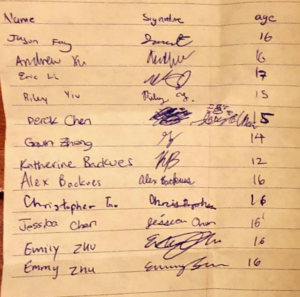 Name Signature age
Jason Fang 16
Andrew Xu 16
Eric Li 17
Riley Yiu Riley 15
Derek Chen 15
Gavin Zhang 14
Katherine Backues KB 12
Alex Backues Alex Backues 16
Christopher Tao 16
Jessica Chen Jessica Chen 16
Emily Zhu 16
Emmy Zhu 16